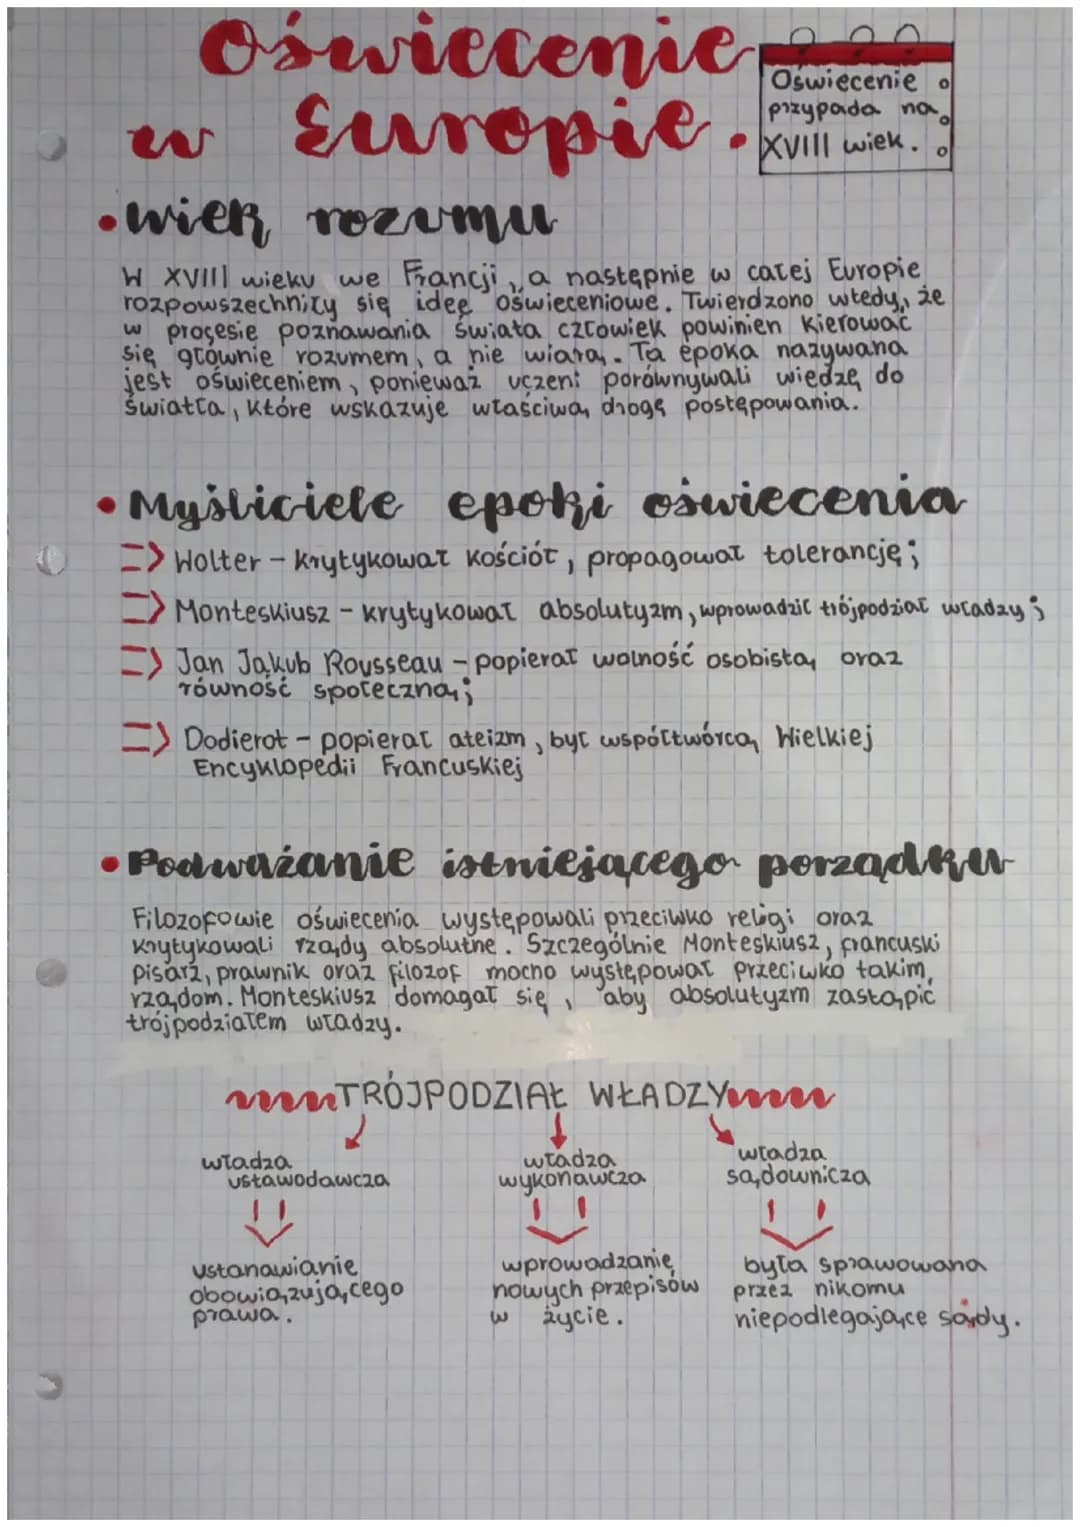 Oświecenie
w Europie.
Oświecenie
przypada na
XVIII wiek.
• wiek rozumu
W XVIII wieku we Francji, a następnie w całej Europie
rozpowszechniły się idee oświeceniowe. Twierdzono wtedy, że
w procesie poznawania świata człowiek powinien kierować
się głównie rozumem, a nie wiarą. Ta epoka nazywana
jest oświeceniem, ponieważ uczeni porównywali wiedzę do
światła, które wskazuje właściwą drogę postępowania.
• Myśliciele epoki oświecenia
=> Wolter - krytykował Kościół, propagował tolerancję;
=> Monteskiusz - krytykował absolutyzm, wprowadził trójpodział władzy;
=> Jan Jakub Rousseau - popierał wolność osobistą oraz
równość społeczną;
=> Dodierot - popierał ateizm, był współtwórcą Wielkiej
Encyklopedii Francuskiej
• Podważanie istniejącego porządku
Filozofowie oświecenia występowali przeciwko religi oraz
krytykowali rządy absolutne. Szczególnie Monteskiusz, francuski
pisarz, prawnik oraz filozof mocno występował przeciwko takim
rządom. Monteskiusz domagał się, aby absolutyzm zastąpić
trójpodziałem władzy.
TRÓJPODZIAŁ WŁADZY
władza
ustawodawcza
władza
wykonawcza
władza
sądownicza
ustanawianie
obowiązującego
prawa.
wprowadzanie
nowych przepisów
w życie.
była sprawowana
przez nikomu
niepodlegające sądy.